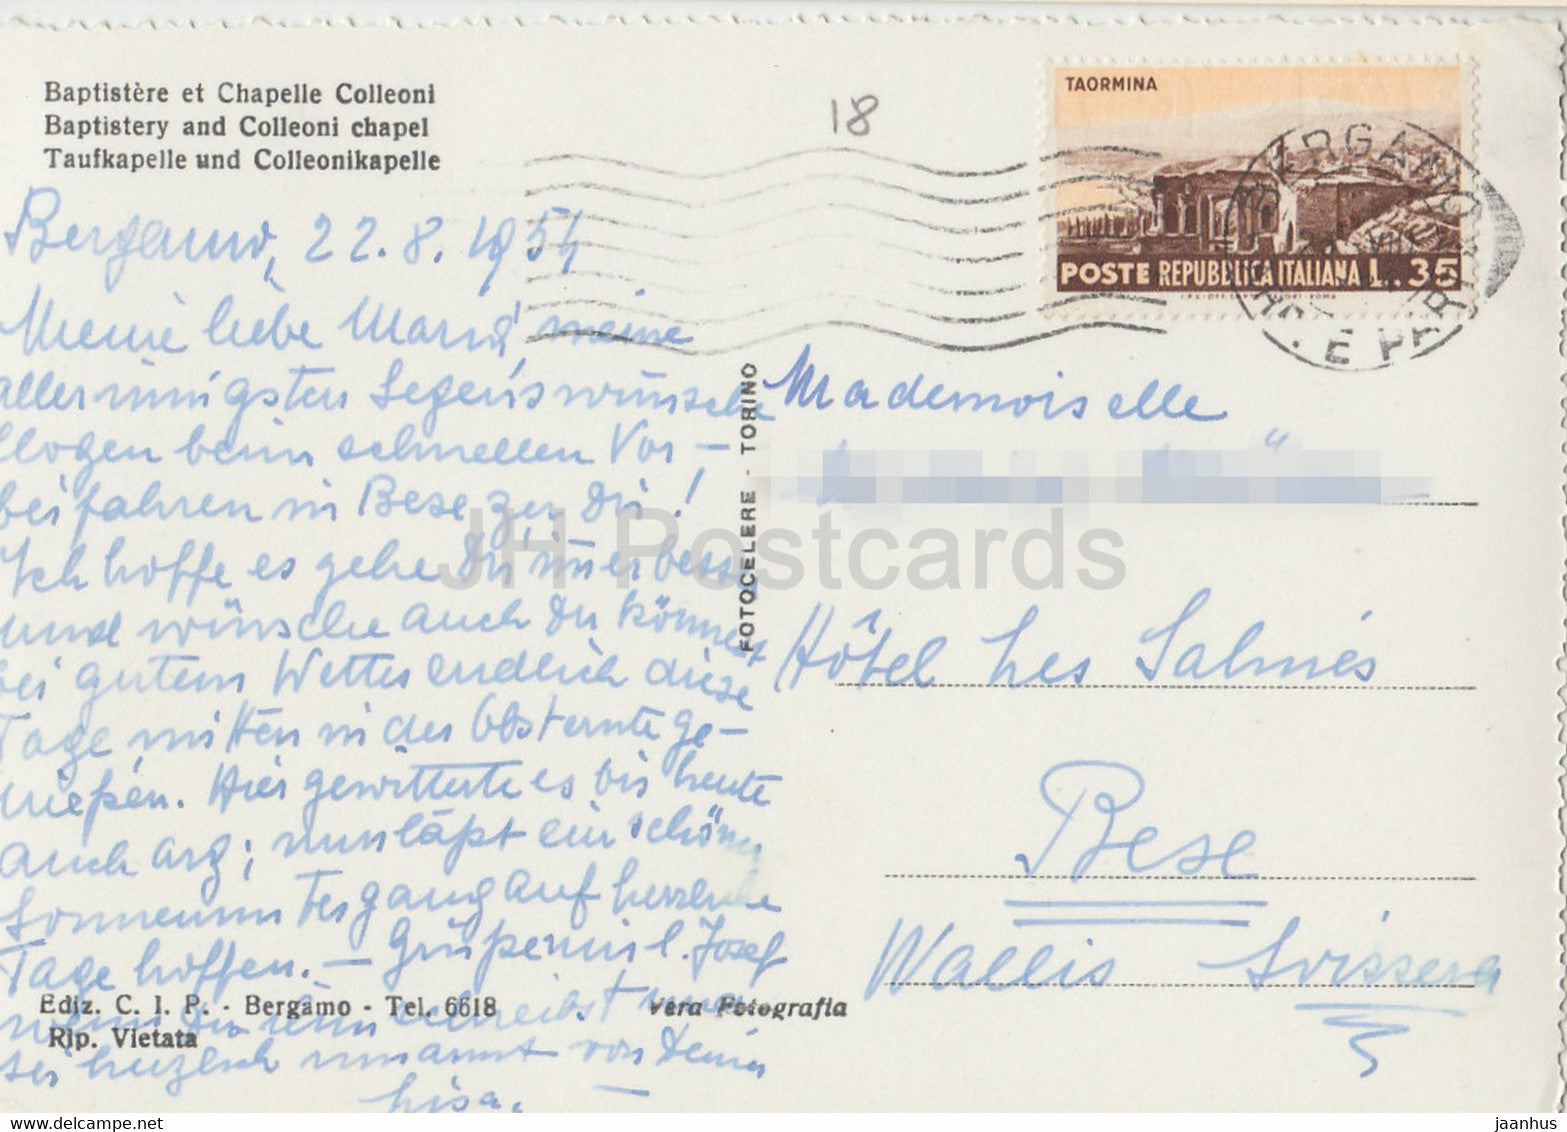 Baptistère et Chapelle Colleoni
Baptistery and Colleoni chapel
Taufkapelle und Colleonikapelle
18
TAORMINA
POSTE REPUBBLICA ITALIANA L. 35
BERGAMO
E PAR
Bergamo, 22.8.1954
Meine liebe Maria, meine
allerinnigsten Segenswünsche
flogen beim schnellen Vor-
beifahren in Bese zu Dir!
Ich hoffe es gehe Dir immer besser
und wünsche auch Du könnest
bei gutem Wetter endlich diese
Tage mitten in der Obsternte ge-
nießen. Hier gewitterte es bis heute
auch arg; nun läßt ein schöner
Sonnenuntergang auf herrliche
Tage hoffen. – Grüße mir l. Josef
wenn Du ihm schreibst und
sei herzlich umarmt von Deiner
Lisa.
FOTOCELERE - TORINO
Mademoiselle
Hôtel Les Salmés
Bese
Wallis Svissera
Ediz. C. I. P. - Bergamo - Tel. 6618
Vera Fotografia
Rip. Vietata
JH Postcards
jaanhus @ www.delcampe.net